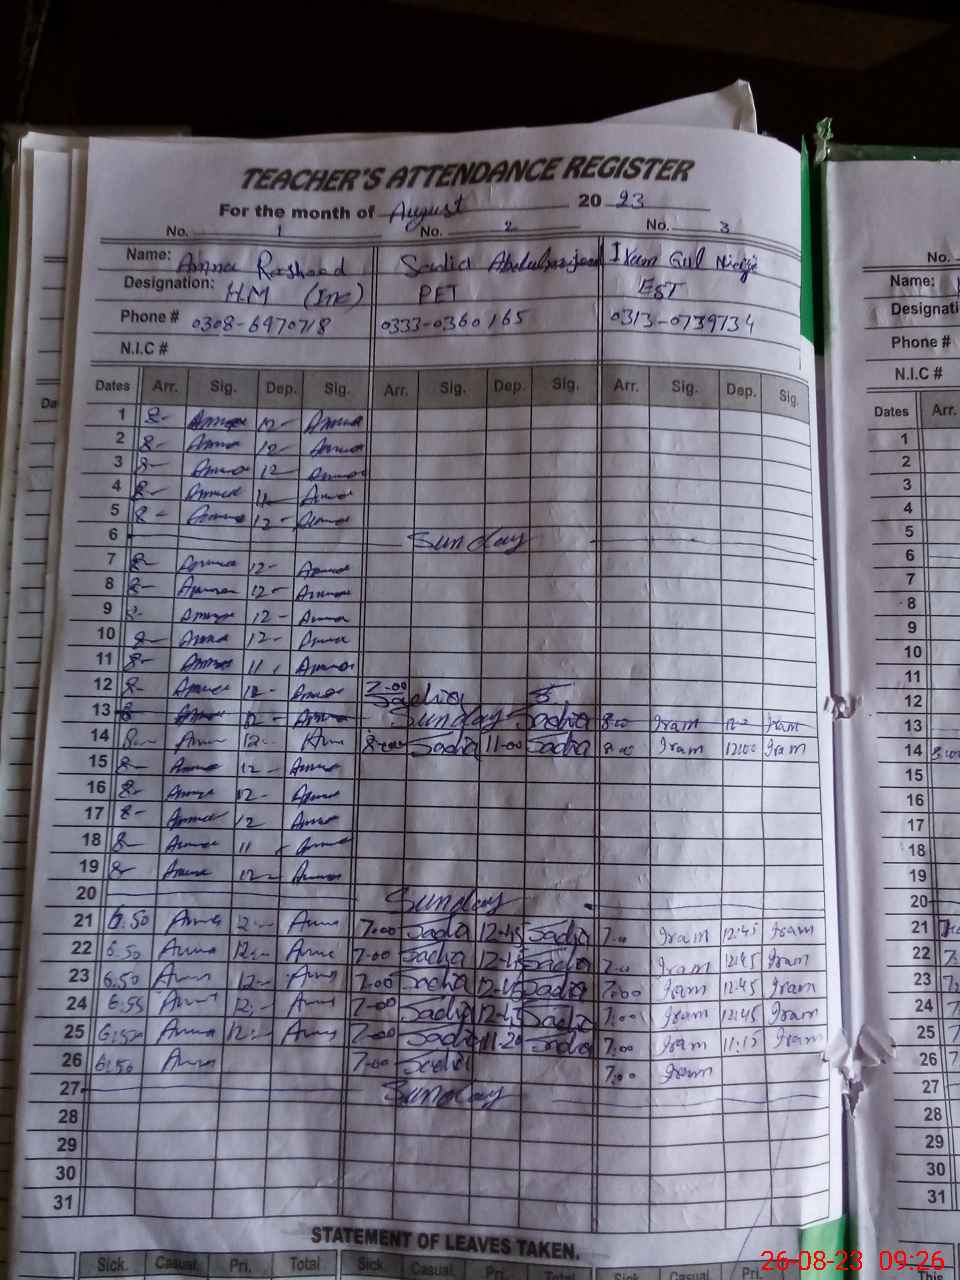 TEACHER'S ATTENDANCE REGISTER
For the month of August 20 23
No. 1 No. 2 No. 3
Name: Amna Rasheed Sadia Ikam Gul
Designation: H.M (Inc) PET EST
Phone # 0308-6970718 0333-0360165 0313-0739734
N.I.C #
Dates Arr. Sig. Dep. Sig. Arr. Sig. Dep. Sig. Arr. Sig. Dep. Sig.
1 8- Amna 12- Amna
2 8- Amna 12- Amna
3 8- Amna 12- Amna
4 8- Amna 11- Amna
5 8- Amna 12- Amna
6 Sunday
7 8- Amna 12- Amna
8 8- Amna 12- Amna
9 8- Amna 12- Amna
10 8- Amna 12- Amna
11 8- Amna 11 Amna
12 8- Amna 12- Amna 7-00 Sadia
13 8 Amna 12- Amna Sunday Sadia 8:00 Iram Iram
14 8- Amna 12- Amna 8-00 Sadia 11-00 Sadia 8:00 Iram 12:00 Iram
15 8- Amna 12- Amna
16 8- Amna 12- Amna
17 8- Amna 12 Amna
18 8- Amna 11 Amna
19 8- Amna 12- Amna
20 Sunday
21 6.50 Amna 12:- Amna 7-00 Sadia 12-45 Sadia 7:00 Iram 12:45 Iram
22 6.50 Amna 12:- Amna 7-00 Sadia 12-45 Sadia 7:00 Iram 12:45 Iram
23 6.50 Amna 12- Amna 7-00 Sadia 12-45 Sadia 7:00 Iram 12:45 Iram
24 6.55 Amna 12:- Amna 7-00 Sadia 12-45 Sadia 7:00 Iram 12:45 Iram
25 6:50 Amna 12:- Amna 7-00 Sadia 11-20 Sadia 7:00 Iram 11:15 Iram
26 6:50 Amna 7-00 Sadia 7:00 Iram
27 Sunday
28
29
30
31
STATEMENT OF LEAVES TAKEN.
Sick. Casual. Pri. Total Sick. Casual. Pri. Total Sick Casual. Pri. Total
No.
Name:
Designati
Phone #
N.I.C #
Dates Arr.
1
2
3
4
5
6
7
8
9
10
11
12
13
14 8:00
15
16
17
18
19
20
21
22
23
24
25
26
27
28
29
30
31
26-08-23 09:26